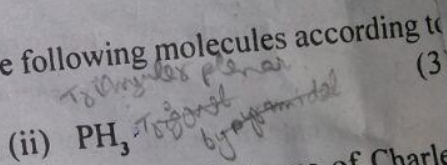 e following molecules according to
Triangular planar
(3
(ii) PH₃ Trigonal
bypyramidal
of Charle